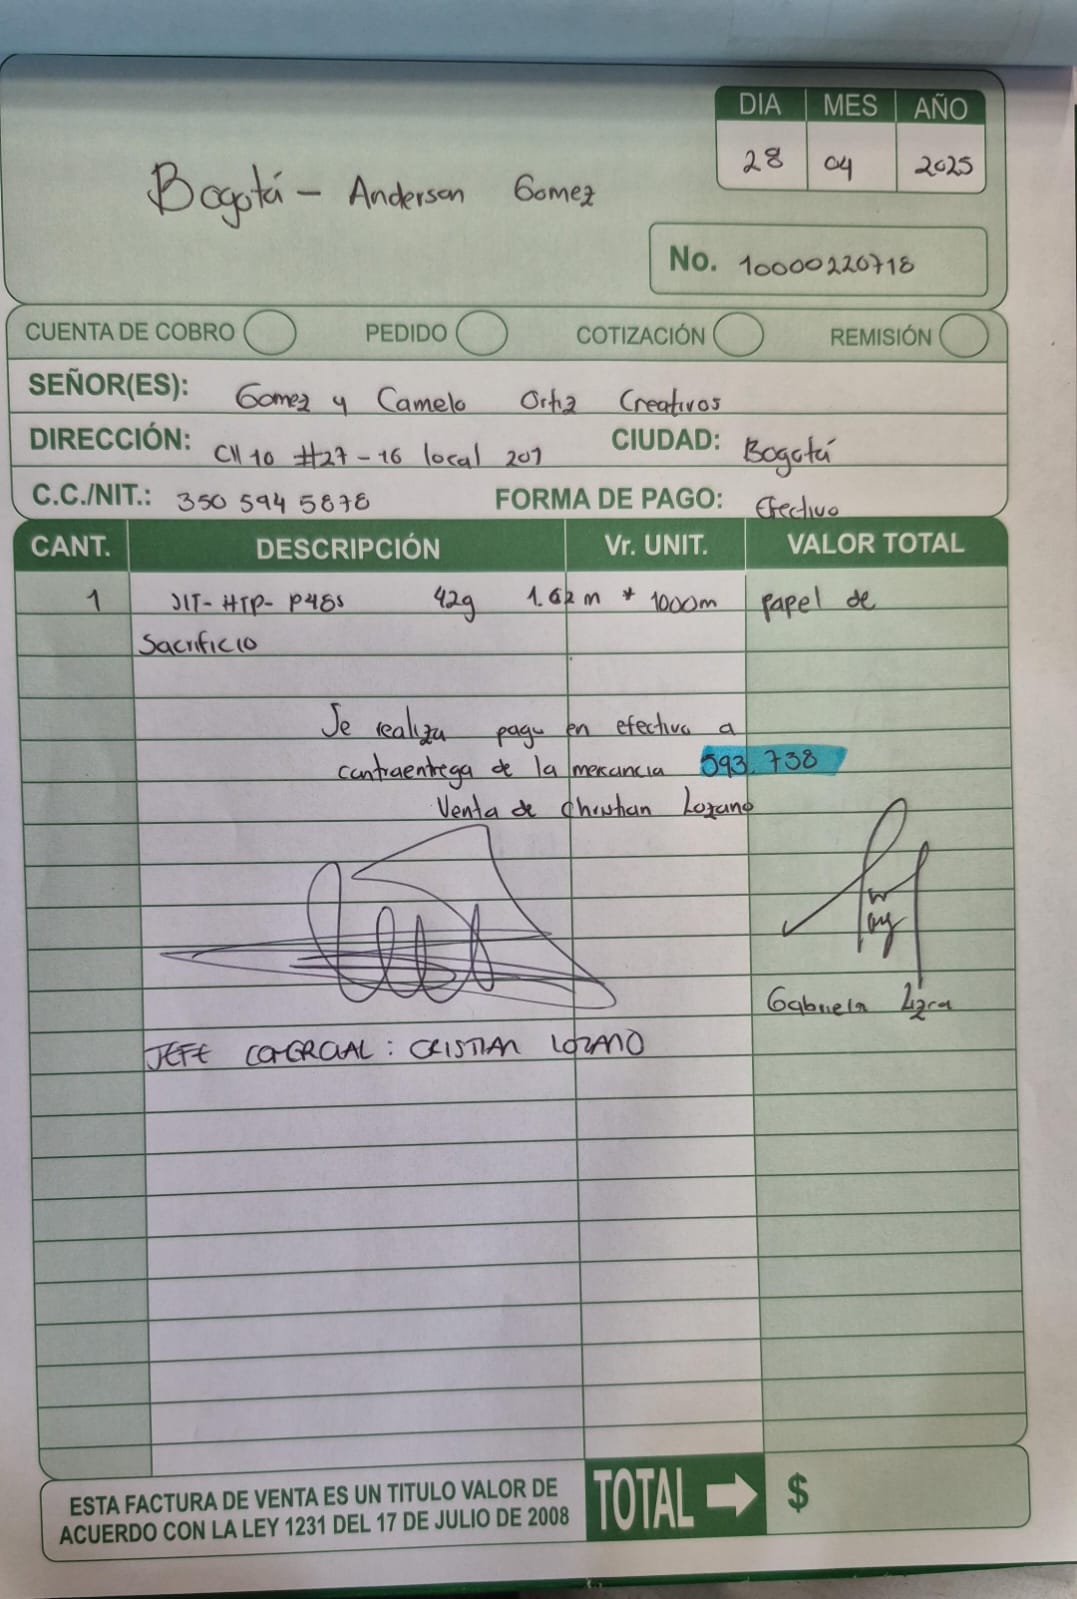 DIA MES AÑO
28 04 2025
Bogotá - Anderson Gomez
No. 10000220718
CUENTA DE COBRO PEDIDO COTIZACIÓN REMISIÓN
SEÑOR(ES): Gomez y Camelo Ortiz Creativos
DIRECCIÓN: Cll 10 #27-16 local 201 CIUDAD: Bogotá
C.C./NIT.: 350 594 5878 FORMA DE PAGO: Efectivo
CANT. DESCRIPCIÓN Vr. UNIT. VALOR TOTAL
1 JIT-HTP-P48s 42g 1.62m * 1000m papel de
Sacrificio
Se realiza pago en efectivo a
contraentrega de la mercancia 593.738
Venta de Christian Lozano
Gabriela
JEFE COMERCIAL: CRISTIAN LOZANO
ESTA FACTURA DE VENTA ES UN TITULO VALOR DE
ACUERDO CON LA LEY 1231 DEL 17 DE JULIO DE 2008
TOTAL $